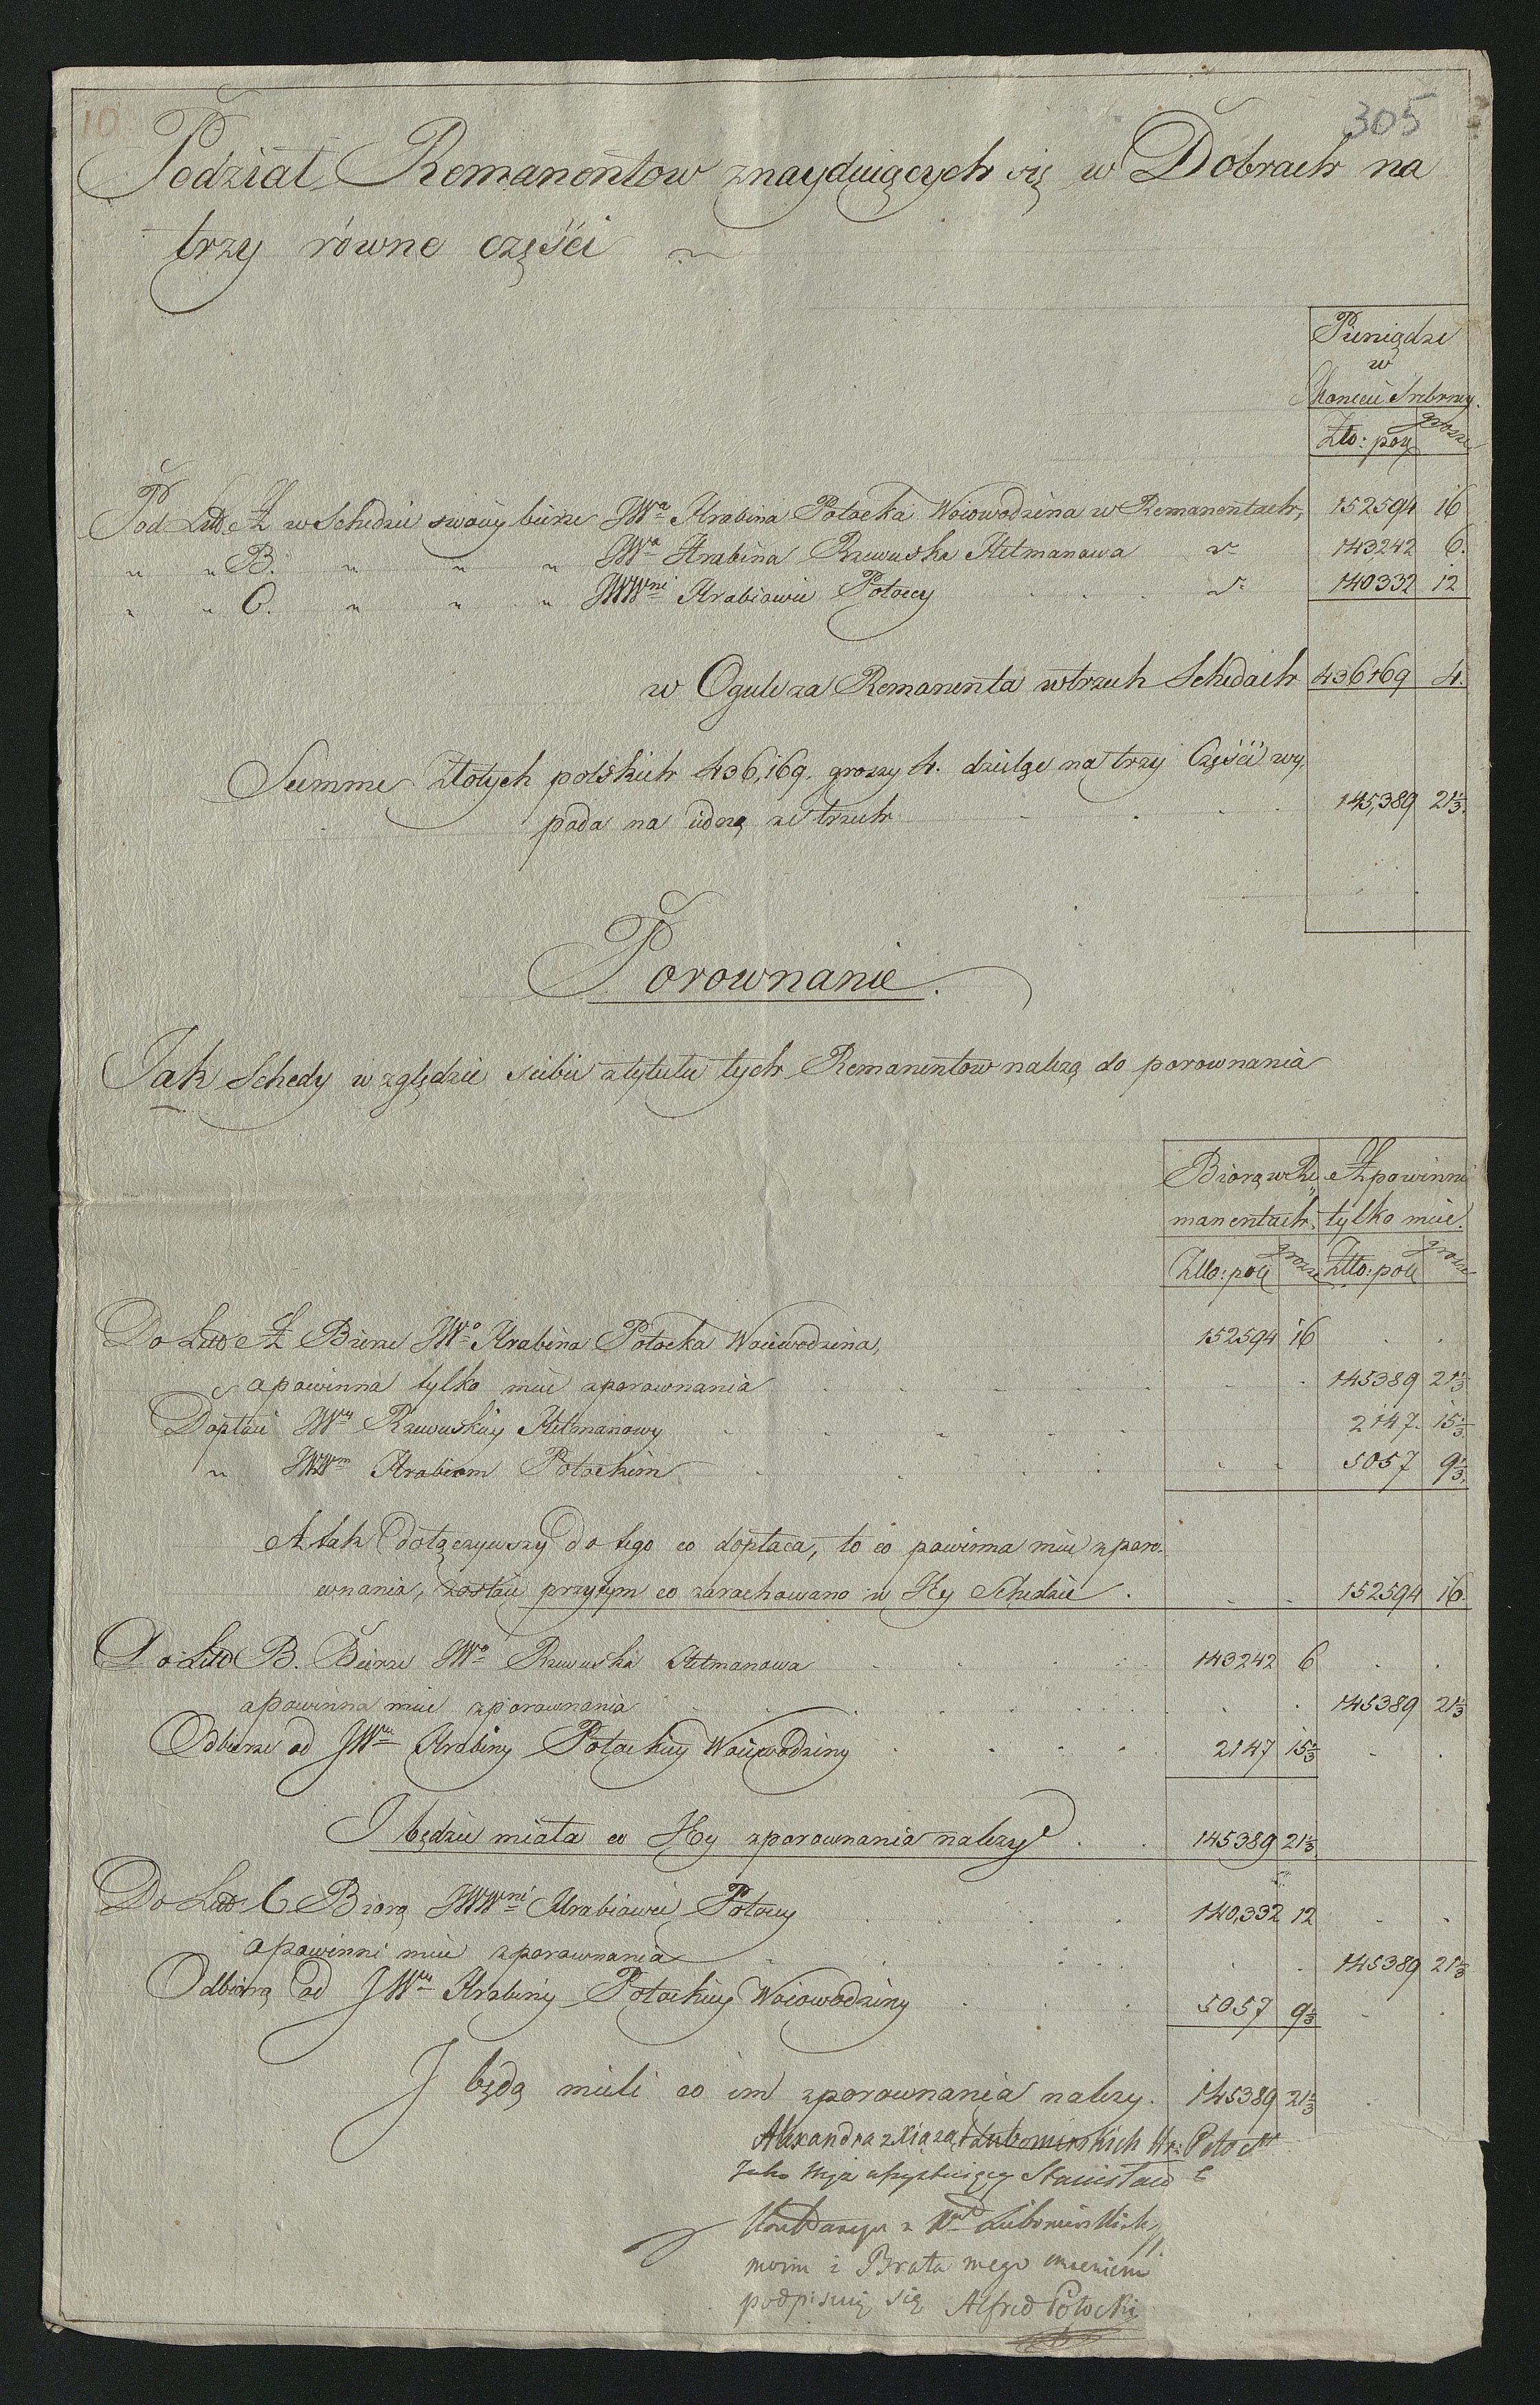 10
305
Podział Remanentow znayduiących się w Dobrach na
trzy równe części
Pieniądze
w
Monecie Srebrney.
Zło: pol grosze
Pod Lit A w Schedzie swoiey bierze JWa Hrabina Potocka Woiewodzina w Remanentach, 152594 16
" " B. " " " JWa Hrabina Rzewuska Hetmanowa 143242 6.
" " C. " " " JWWni Hrabiowie Potoccy 140332 12
w Ogule za Remanenta w trzech Schedach 436169 4.
Summe Złotych polskich 436,169. groszy 4. dzieląc na trzy Części wy,
pada na iedną ze trzech 145,389 21⅓.
Porownanie.
Jak Schedy względzie siebie z tytułu tych Remanentow należą do porownania
Biorą w Re, A powinni
manentach. tylko mieć.
Zło: pol grosze Zło: pol grosze
Do Lit A Bierze JWa Hrabina Potocka Woiewodzina, 152594 16
a powinna tylko mieć z porownania 145389 21⅓
Dopłaci JWey Rzewuskiey Hetmanowy 2147. 15⅓
" JWWm Hrabiom Potockim 5057 9⅓.
A tak dołączywszy do tego co dopłaca, to co powinna mieć z poro,
wnania, zostaie przytym co zarachowano w Jey Schedzie. 152594 16.
Do Lit B. Bierze JWa Rzewuska Hetmanowa 143242 6
a powinna mieć z porownania 145389 21⅓
Odbierze od JWey Hrabiny Potockiey Woiewodziny 2147 15⅓
I będzie miała co Jey z porownania należy 145389 21⅓
Do Lit C Biorą JWWni Hrabiowie Potoccy 140,332 12
a powinni mieć z porownania 145389 21⅓
Odbiorą od JWey Hrabiny Potockiey Woiewodziny 5057 9⅓
I będą mieli co im z porownania należy. 145389 21⅓
Alexandra z Xiążąt Lubomirskich Hr: Potock
Jako Mąż Stanisław
z Lubomirskich
moim i Brata mego imieniem
podpisuię się Alfred Potocki